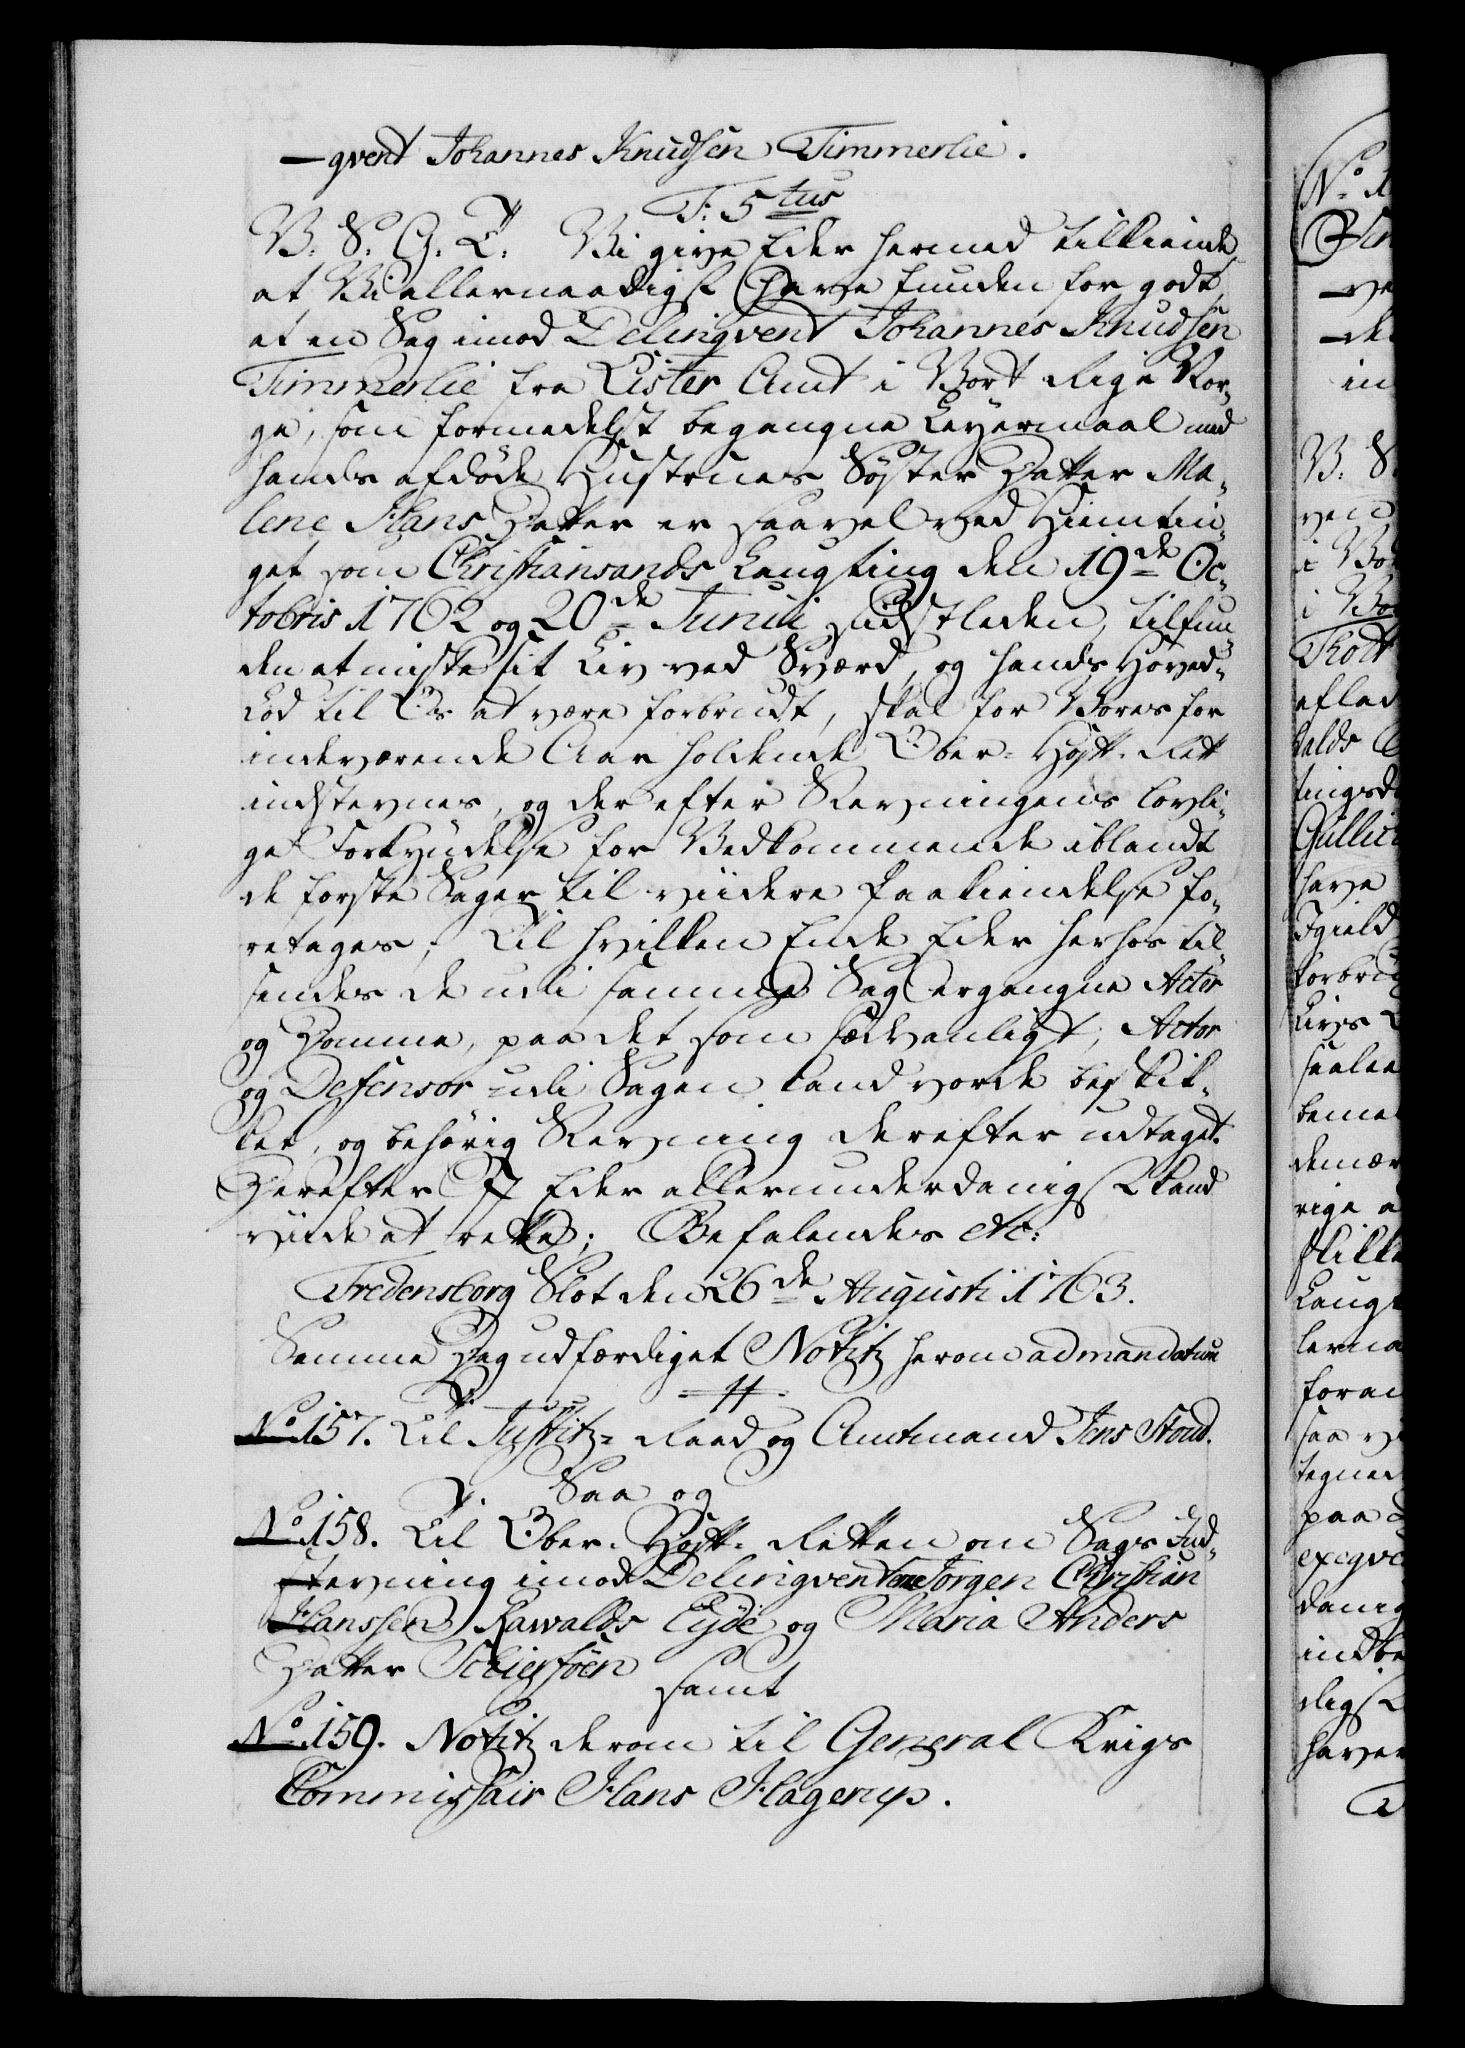 -qvent Johannes Knudsen Timmerlie.
F: 5tus
V. S. G. T. Vi give Eder hermed tilkiende,
at Vi allernaadigst have funden for godt,
at en Sag imod Delinqvent Johannes Knudsen
Timmerlie fra Lister Amt i Vort Rige Nor-
ge, som formedelst begangne Leyermaal med
hands afdøde Hustrues Søster Datter Ma-
lene Hans Datter er saavel ved Hiemtin-
get som Christiansands Laugting den 19de Oc-
tobris 1762 og 20de Junii sidstleden, tilfun-
den at miste sit Liv ved Sværd, og hands Hoved-
Lod til Os at være forbrudt, skal for Vores for
indeværende Aar holdende Ober-Hofft-Rett
indstevnes, og der efter Stevningens lovli-
ge Forkyndelse for Vedkommende iblandt
de første Sager til viidere Paakiendelse fo-
retages; Til hvilken Ende Eder herhos til-
sendes de udi samme Sag ergangne Acter
og Domme, paa det som sædvanligt, Actor
og Defensor udi Sagen kand vorde beskik-
ket, og behørig Stevning derefter udtaget.
Derefter I Eder allerunderdanigst kand
viide at rette; Befalendes etc:
Fredensborg Slot den 26de Augusti 1763.
Samme Dag udfærdiget Notitz herom ad mandatum
No 157. Til Justitz-Raad og Amtmand Jens Stoud.
Saa og
No 158. Til Ober-Hofft-Retten om Sags Ind-
stevning imod Delinqventerne Jørgen Christian
Hanssen Rawalds Eyde og Maria Anders
Datter
samt
No 159. Notitz derom til General Krigs
Commissair Hans Hagerup.